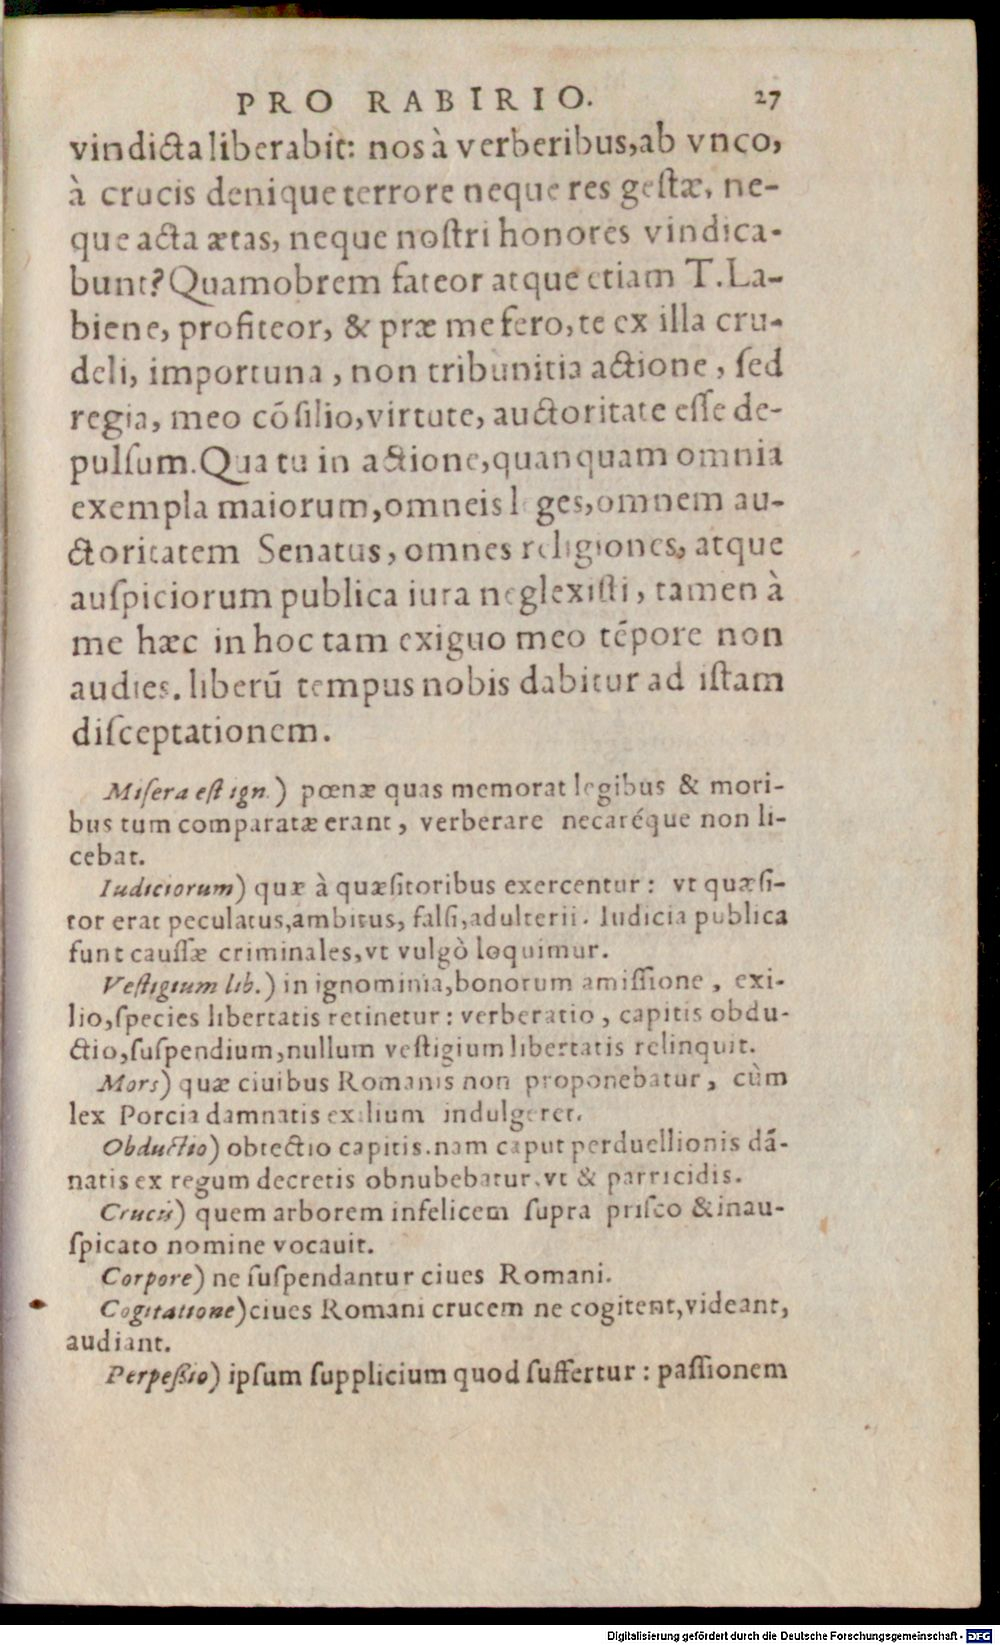 PRO RABIRIO. 27
vindicta liberabit: nos à verberibus, ab vnco,
à crucis denique terrore neque res gestæ, ne-
que acta ætas, neque nostri honores vindica-
bunt? Quamobrem fateor atque etiam T. La-
biene, profiteor, & præ me fero, te ex illa cru-
deli, importuna, non tribunitia actione, ſed
regia, meo cōſilio, virtute, auctoritate eſſe de-
pulſum. Qua tu in actione, quanquam omnia
exempla maiorum, omneis leges, omnem au-
ctoritatem Senatus, omnes religiones, atque
auſpiciorum publica iura neglexiſti, tamen à
me hæc in hoc tam exiguo meo tẽpore non
audies. liberũ tempus nobis dabitur ad iſtam
diſceptationem.
Miſera eſt ign.) pœnæ quas memorat legibus & mori-
bus tum comparatæ erant, verberare necaréque non li-
cebat.
Iudiciorum) quæ à quæſitoribus exercentur: vt quæſi-
tor erat peculatus, ambitus, falſi, adulterii. Iudicia publica
ſunt cauſſæ criminales, vt vulgò loquimur.
Veſtigium lib.) in ignominia, bonorum amiſſione, exi-
lio, ſpecies libertatis retinetur: verberatio, capitis obdu-
ctio, ſuſpendium, nullum veſtigium libertatis relinquit.
Mors) quæ ciuibus Romanis non proponebatur, cùm
lex Porcia damnatis exilium indulgeret.
Obductio) obtectio capitis. nam caput perduellionis dā-
natis ex regum decretis obnubebatur, vt & parricidis.
Crucis) quem arborem infelicem ſupra priſco & inau-
ſpicato nomine vocauit.
Corpore) ne ſuſpendantur ciues Romani.
Cogitatione) ciues Romani crucem ne cogitent, videant,
audiant.
Perpeßio) ipſum ſupplicium quod ſuffertur: paſſionem
Digitalisierung gefördert durch die Deutsche Forschungsgemeinschaft - DFG